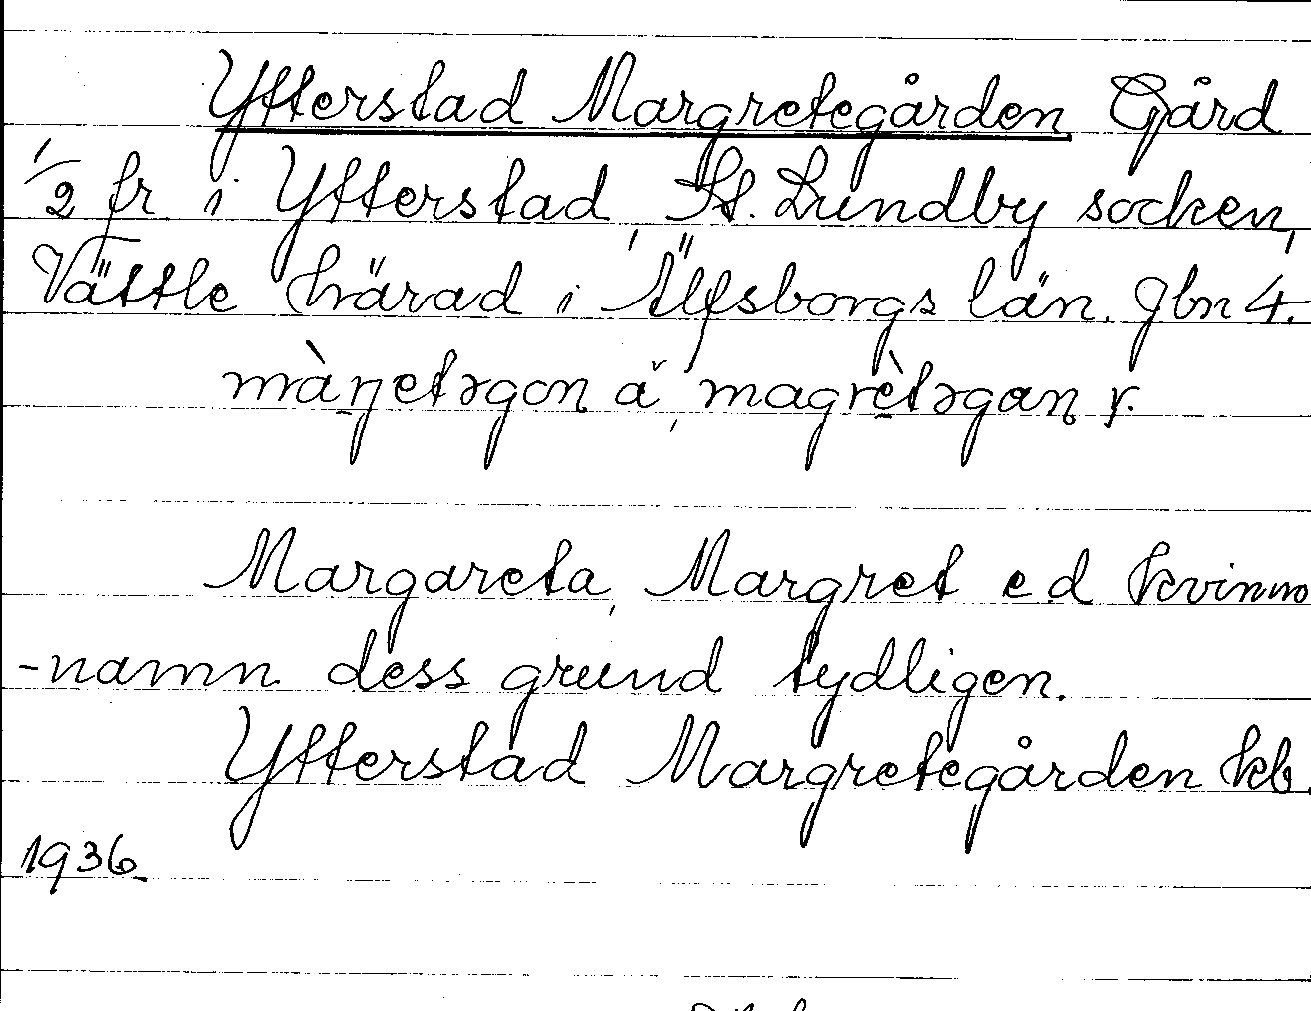 Yfterstad Margretegården Gård
1/2 fr i Yfterstad, St. Lundby socken,
Vättle härad i Älfsborgs län. Jbn 4.
màŋetəgon ä, magrètəgan r.
Margareta, Margret ed kvinno
-namn dess grund tydligen.
Yfterstad Margretegården kb.
1936.